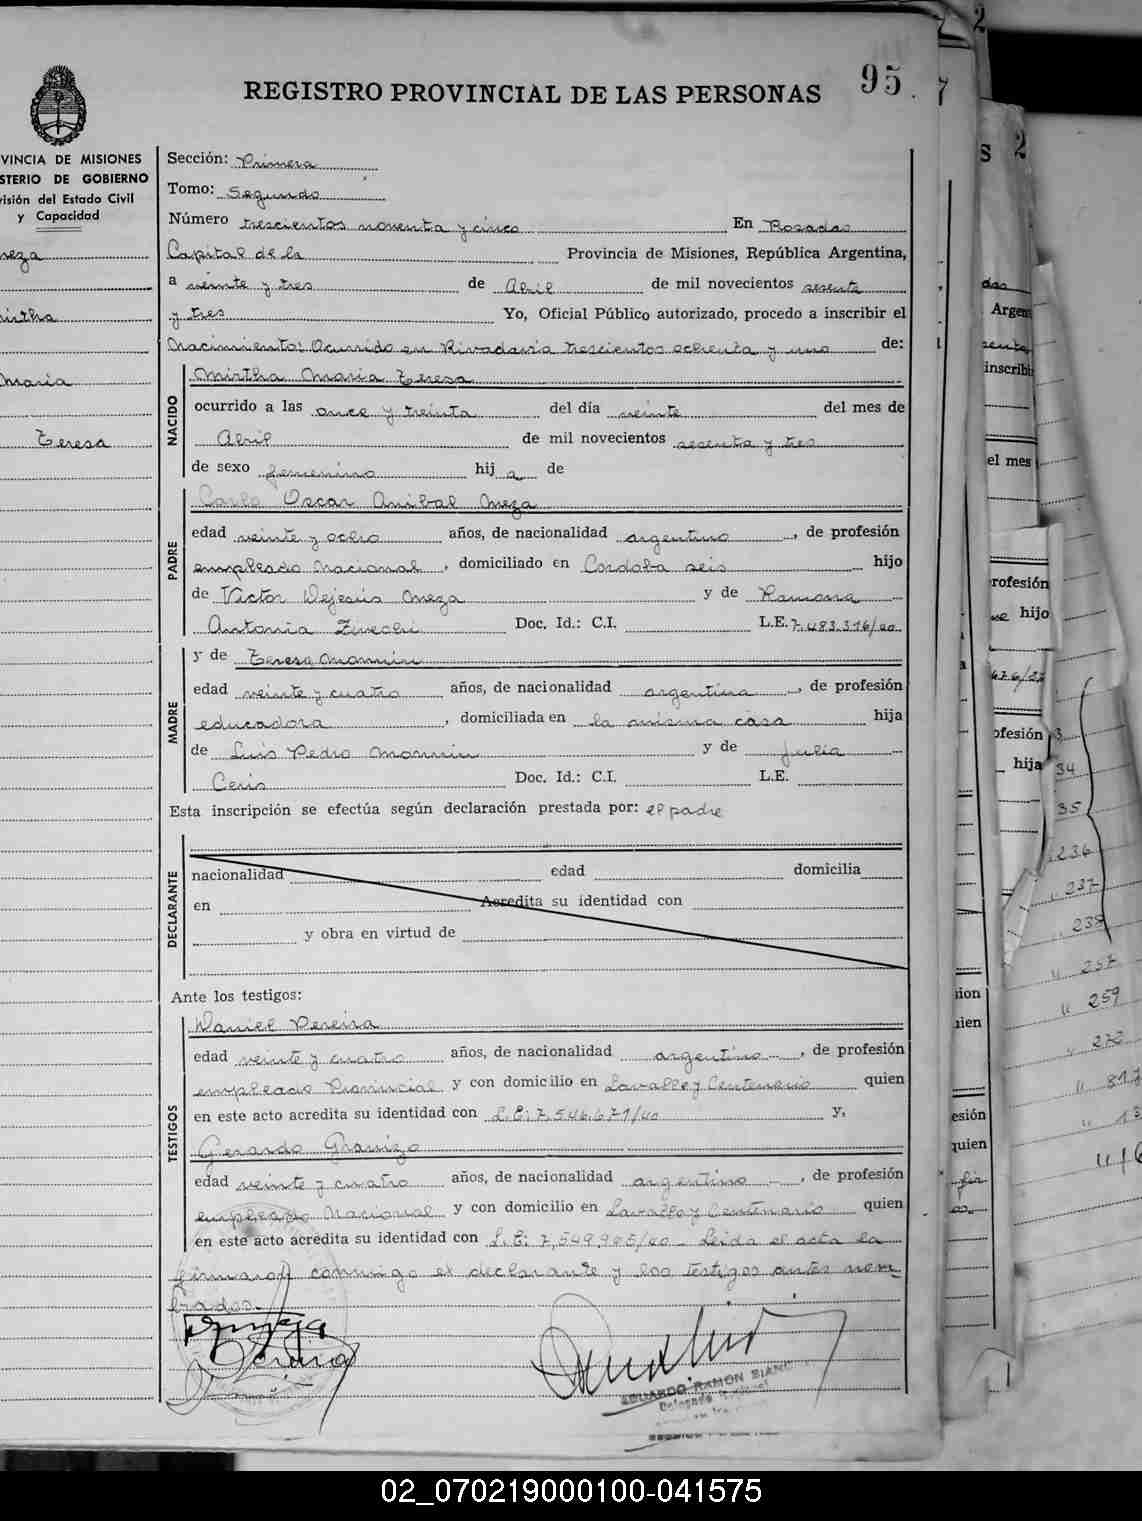 95
REGISTRO PROVINCIAL DE LAS PERSONAS
VINCIA DE MISIONES
STERIO DE GOBIERNO
isión del Estado Civil
y Capacidad
neza
Mirtha
Maria
Teresa
Sección: Primera
Tomo: Segundo
Número trescientos noventa y cinco En Posadas
Capital de la Provincia de Misiones, República Argentina,
a veinte y tres de Abril de mil novecientos sesenta
y tres Yo, Oficial Público autorizado, procedo a inscribir el
Nacimiento: Ocurrido en Rivadavia trescientos ochenta y uno de:
NACIDO
Mirtha Maria Teresa
ocurrido a las once y treinta del día veinte del mes de
Abril de mil novecientos sesenta y tres
de sexo femenino hij a de
PADRE
Carlo Oscar Anibal Meza
edad veinte y ocho años, de nacionalidad argentino, de profesión
empleado Nacional, domiciliado en Cordoba seis hijo
de Victor Dejesús Meza y de Ramona
Antonia Doc. Id.: C.I. L.E. 7.483.316/40
MADRE
y de Teresa Monnin
edad veinte y cuatro años, de nacionalidad argentina, de profesión
educadora, domiciliada en la misma casa hija
de Luis Pedro Monnin y de Julia
Ceris Doc. Id.: C.I. L.E.
Esta inscripción se efectúa según declaración prestada por: el padre
DECLARANTE
nacionalidad edad domicilia
en Acredita su identidad con
y obra en virtud de
Ante los testigos:
TESTIGOS
Daniel Pereira
edad veinte y cuatro años, de nacionalidad argentino, de profesión
empleado Provincial y con domicilio en Lavalle y Centenario quien
en este acto acredita su identidad con L.E: 7.546.671/40 y,
Gerardo Granizo
edad veinte y cuatro años, de nacionalidad argentino, de profesión
empleado Nacional y con domicilio en Lavalle y Centenario quien
en este acto acredita su identidad con L.E: 7,549,945/40 - Leida el acta la
firmaron conmigo el declarante y los testigos antes nom-
brados.
EDUARDO RAMON BIANC
Delegado
02_070219000100-041575